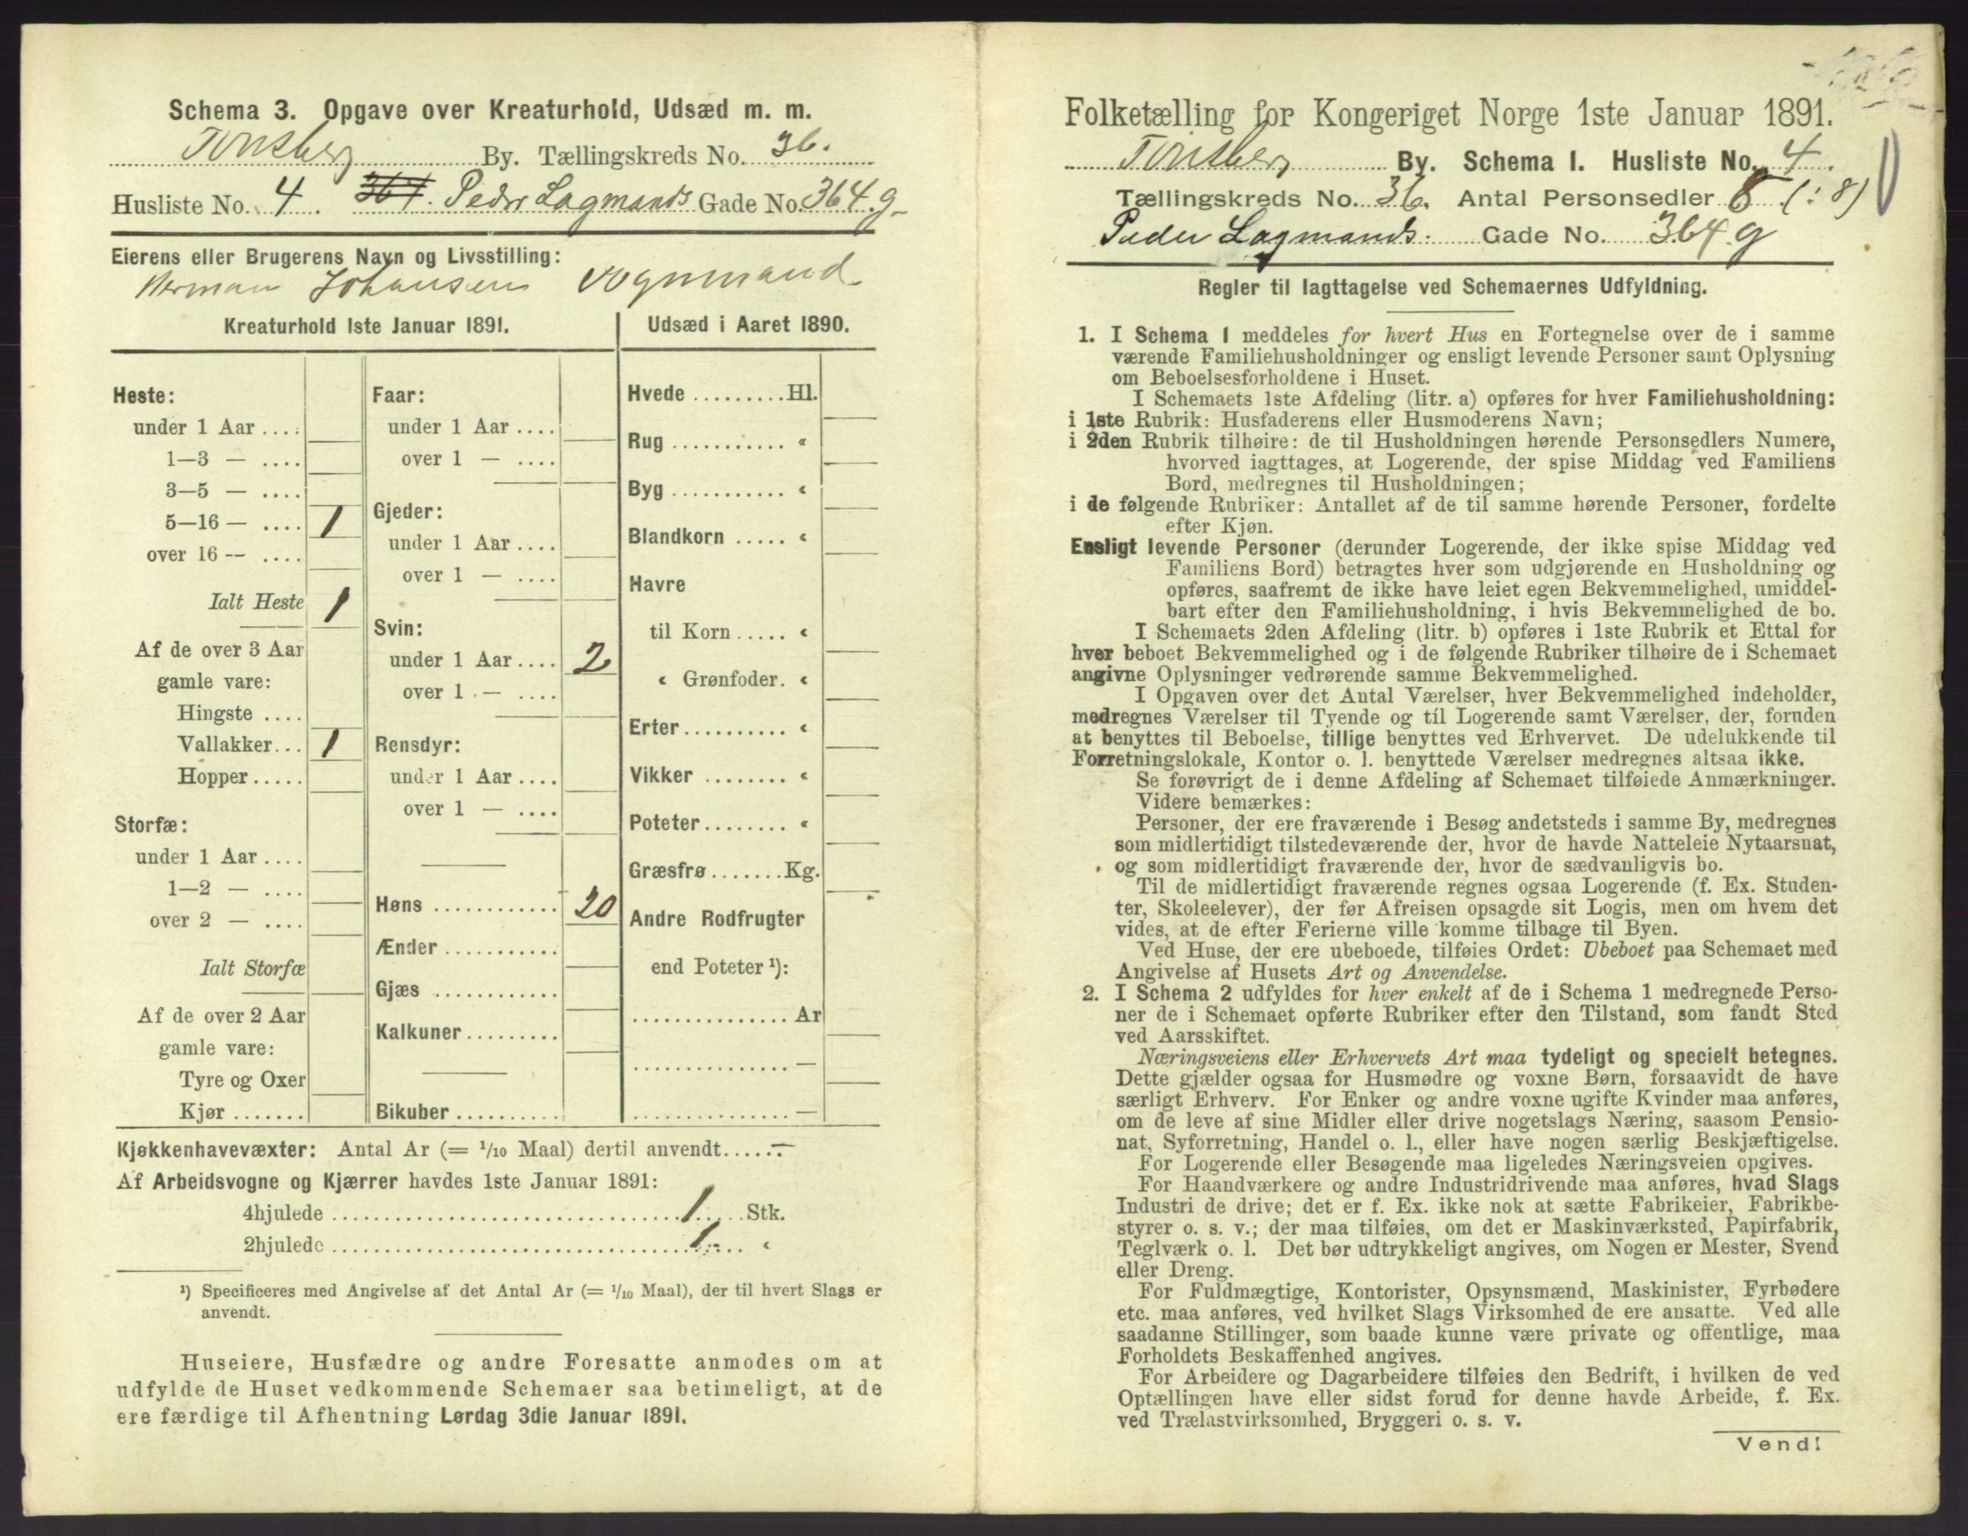 Schema 3. Opgave over Kreaturhold, Udsæd m. m.
Tønsberg By. Tællingskreds No. 36.
Husliste No. 4. 364. Peder Lagmands Gade No. 364 g
Eierens eller Brugerens Navn og Livsstilling:
Herman Johansen Vognmand
Kreaturhold 1ste Januar 1891.
Heste:
under 1 Aar ....
1—3 — ....
3—5 — ....
5—16 — .... 1
over 16 — ....
Ialt Heste 1
Af de over 3 Aar
gamle vare:
Hingste ....
Vallakker... 1
Hopper.....
Storfæ:
under 1 Aar ....
1—2 — ....
over 2 — ....
Ialt Storfæ
Af de over 2 Aar
gamle vare:
Tyre og Oxer
Kjør .......
Faar:
under 1 Aar ....
over 1 — ....
Gjeder:
under 1 Aar ....
over 1 — ....
Svin:
under 1 Aar .... 2
over 1 — ....
Rensdyr:
under 1 Aar ....
over 1 — ....
Høns ............ 20
Ænder ...........
Gjæs ............
Kalkuner.........
Bikuber ..........
Udsæd i Aaret 1890.
Hvede .........Hl.
Rug ........... «
Byg ........... «
Blandkorn ..... «
Havre
til Korn ..... «
« Grønfoder. «
Erter.......... «
Vikker ........ «
Poteter........ «
Græsfrø.......Kg.
Andre Rodfrugter
end Poteter ¹):
............... Ar
............... —
............... —
Kjøkkenhavevæxter: Antal Ar (= 1/10 Maal) dertil anvendt...... —
Af Arbeidsvogne og Kjærrer havdes 1ste Januar 1891:
4hjulede .................................. 1 ..... Stk.
2hjulede .................................. 1 ..... «
¹) Specificeres med Angivelse af det Antal Ar (= 1/10 Maal), der til hvert Slags er
anvendt.
Huseiere, Husfædre og andre Foresatte anmodes om at
udfylde de Huset vedkommende Schemaer saa betimeligt, at de
ere færdige til Afhentning Lørdag 3die Januar 1891.
Folketælling for Kongeriget Norge 1ste Januar 1891.
Tønsberg By. Schema I. Husliste No. 4.
Tællingskreds No. 36. Antal Personsedler 8 (: 8)
Peder Lagmands. Gade No. 364 g
Regler til Iagttagelse ved Schemaernes Udfyldning.
1. I Schema I meddeles for hvert Hus en Fortegnelse over de i samme
værende Familiehusholdninger og ensligt levende Personer samt Oplysning
om Beboelsesforholdene i Huset.
I Schemaets 1ste Afdeling (litr. a) opføres for hver Familiehusholdning:
i 1ste Rubrik: Husfaderens eller Husmoderens Navn;
i 2den Rubrik tilhøire: de til Husholdningen hørende Personsedlers Numere,
hvorved iagttages, at Logerende, der spise Middag ved Familiens
Bord, medregnes til Husholdningen;
i de følgende Rubriker: Antallet af de til samme hørende Personer, fordelte
efter Kjøn.
Ensligt levende Personer (derunder Logerende, der ikke spise Middag ved
Familiens Bord) betragtes hver som udgjørende en Husholdning og
opføres, saafremt de ikke have leiet egen Bekvemmelighed, umiddel-
bart efter den Familiehusholdning, i hvis Bekvemmelighed de bo.
I Schemaets 2den Afdeling (litr. b) opføres i 1ste Rubrik et Ettal for
hver beboet Bekvemmelighed og i de følgende Rubriker tilhøire de i Schemaet
angivne Oplysninger vedrørende samme Bekvemmelighed.
I Opgaven over det Antal Værelser, hver Bekvemmelighed indeholder,
medregnes Værelser til Tyende og til Logerende samt Værelser, der, foruden
at benyttes til Beboelse, tillige benyttes ved Erhvervet. De udelukkende til
Forretningslokale, Kontor o. l. benyttede Værelser medregnes altsaa ikke.
Se forøvrigt de i denne Afdeling af Schemaet tilføiede Anmærkninger.
Videre bemærkes:
Personer, der ere fraværende i Besøg andetsteds i samme By, medregnes
som midlertidigt tilstedeværende der, hvor de havde Natteleie Nytaarsnat,
og som midlertidigt fraværende der, hvor de sædvanligvis bo.
Til de midlertidigt fraværende regnes ogsaa Logerende (f. Ex. Studen-
ter, Skoleelever), der før Afreisen opsagde sit Logis, men om hvem det
vides, at de efter Ferierne ville komme tilbage til Byen.
Ved Huse, der ere ubeboede, tilføies Ordet: Ubeboet paa Schemaet med
Angivelse af Husets Art og Anvendelse.
2. I Schema 2 udfyldes for hver enkelt af de i Schema 1 medregnede Perso-
ner de i Schemaet opførte Rubriker efter den Tilstand, som fandt Sted
ved Aarsskiftet.
Næringsveiens eller Erhvervets Art maa tydeligt og specielt betegnes.
Dette gjælder ogsaa for Husmødre og voxne Børn, forsaavidt de have
særligt Erhverv. For Enker og andre voxne ugifte Kvinder maa anføres,
om de leve af sine Midler eller drive nogetslags Næring, saasom Pensio-
nat, Syforretning, Handel o. l., eller have nogen særlig Beskjæftigelse.
For Logerende eller Besøgende maa ligeledes Næringsveien opgives.
For Haandværkere og andre Industridrivende maa anføres, hvad Slags
Industri de drive; det er f. Ex. ikke nok at sætte Fabrikeier, Fabrikbe-
styrer o. s. v.; der maa tilføies, om det er Maskinværksted, Papirfabrik,
Teglværk o. l. Det bør udtrykkeligt angives, om Nogen er Mester, Svend
eller Dreng.
For Fuldmægtige, Kontorister, Opsynsmænd, Maskinister, Fyrbødere
etc. maa anføres, ved hvilket Slags Virksomhed de ere ansatte. Ved alle
saadanne Stillinger, som baade kunne være private og offentlige, maa
Forholdets Beskaffenhed angives.
For Arbeidere og Dagarbeidere tilføies den Bedrift, i hvilken de ved
Optællingen have eller sidst forud for denne havde Arbeide, f. Ex.
ved Trælastvirksomhed, Bryggeri o. s. v.
Vend!